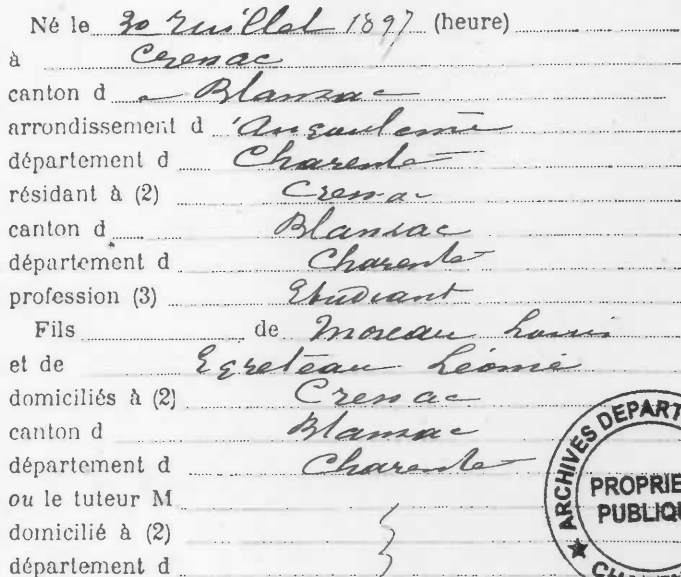 Né le 30 Juillet 1897 (heure)
à Cressac
canton d Blanzac
arrondissement d 'Angoulême
département d Charente
résidant à (2) Cressac
canton d Blanzac
département d Charente
profession (3) Etudiant
Fils de Moreau Louis
et de Egreteau Léonie
domiciliés à (2) Cressac
canton d Blanzac
département d Charente
ou le tuteur M
domicilié à (2)
département d
ARCHIVES DEPART
PROPRIE
PUBLIQU